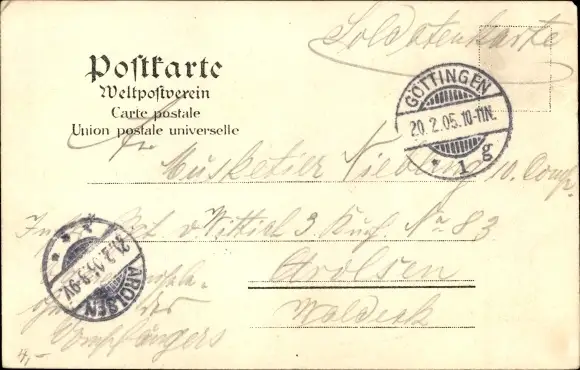 Soldatenkarte
Postkarte
Weltpostverein
Carte postale
Union postale universelle
GÖTTINGEN
20.2.05.10-11N.
* 1 g
An
Musketier 10. Comp.
Inf. Rgt. v. Wittich 3. Kurh. No 83
Arolsen
Waldeck
AROLSEN
21.2.05.8-9V
des
Empfängers
4,-